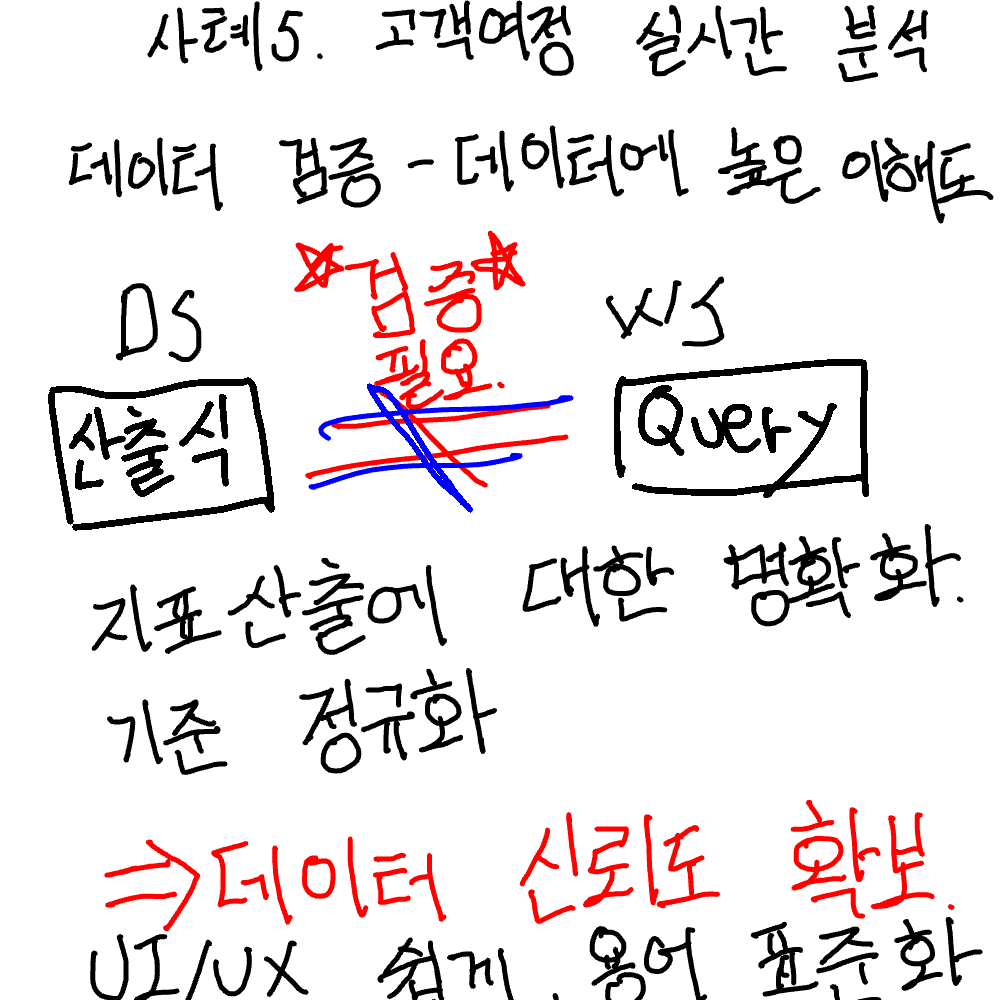 사례5. 고객여정 실시간 분석
데이터 검증 - 데이터에 높은 이해도
☆검증☆
필요.
DS
W/S
산출식
≠
Query
지표산출에 대한 명확화.
기준 정규화
⇒데이터 신뢰도 확보.
UI/UX 쉽게, 용어 표준화